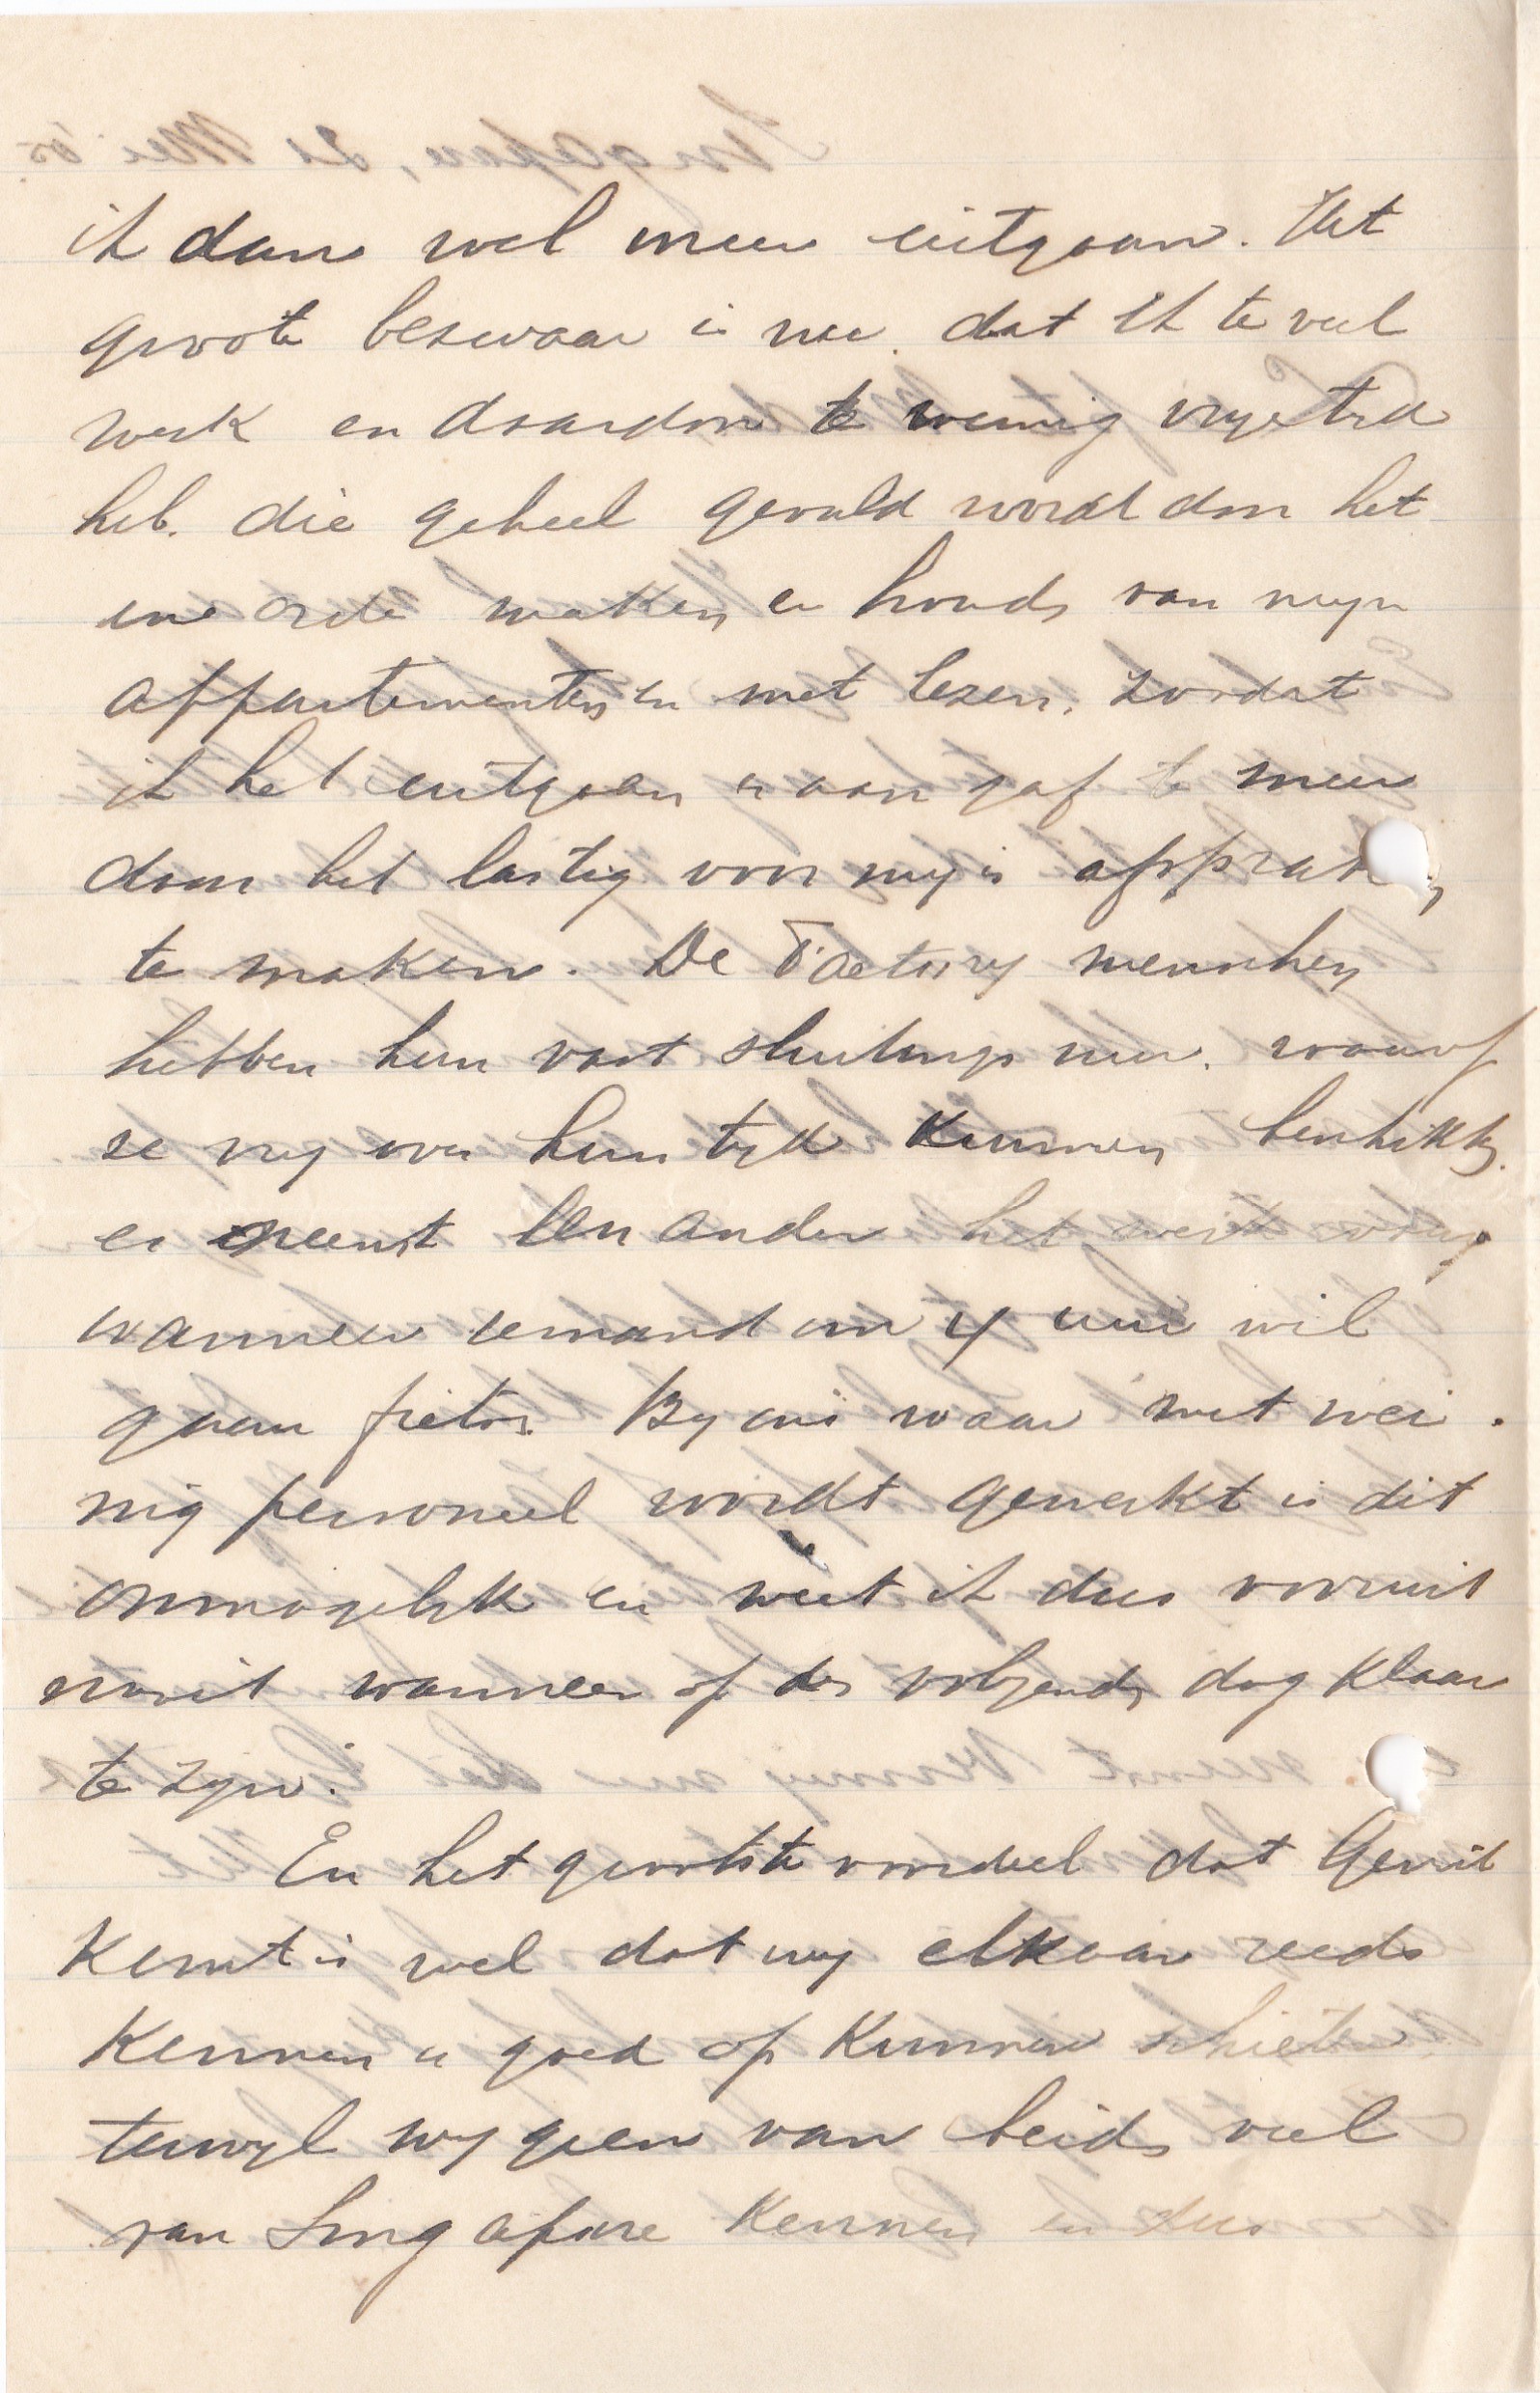 ik dan wel meer uitgaan. Het
groote bezwaar is nu. dat ik te veel
werk en daardoor te weinig vrije tijd
heb. die geheel gevuld wordt door het
in orde maken en houden van mijn
appartementen en met lezen. zoodat
ik het uitgaan er aan gaf te meer
daar het lastig voor mij is afspraken
te maken. De Factory menschen
hebben hun vast sluitings uur. waarop
ze vrij over hun tijd kunnen beschikken.
er neemt een ander het werk waar
wanneer iemand om 4 uur wil
gaan fietsen. Bij ons waar met wei-
nig personeel wordt gewerkt is dit
onmogelijk en weet ik dus vooruit
nooit wanneer of den volgenden dag klaar
te zijn.
En het grootste voordeel dat Gerrit
komt is wel dat wij elkaar reeds
kennen en goed op kunnen schieten
terwijl wij geen van beiden veel
van Singapore kennen en dus
Singapore, 21 Mei '05